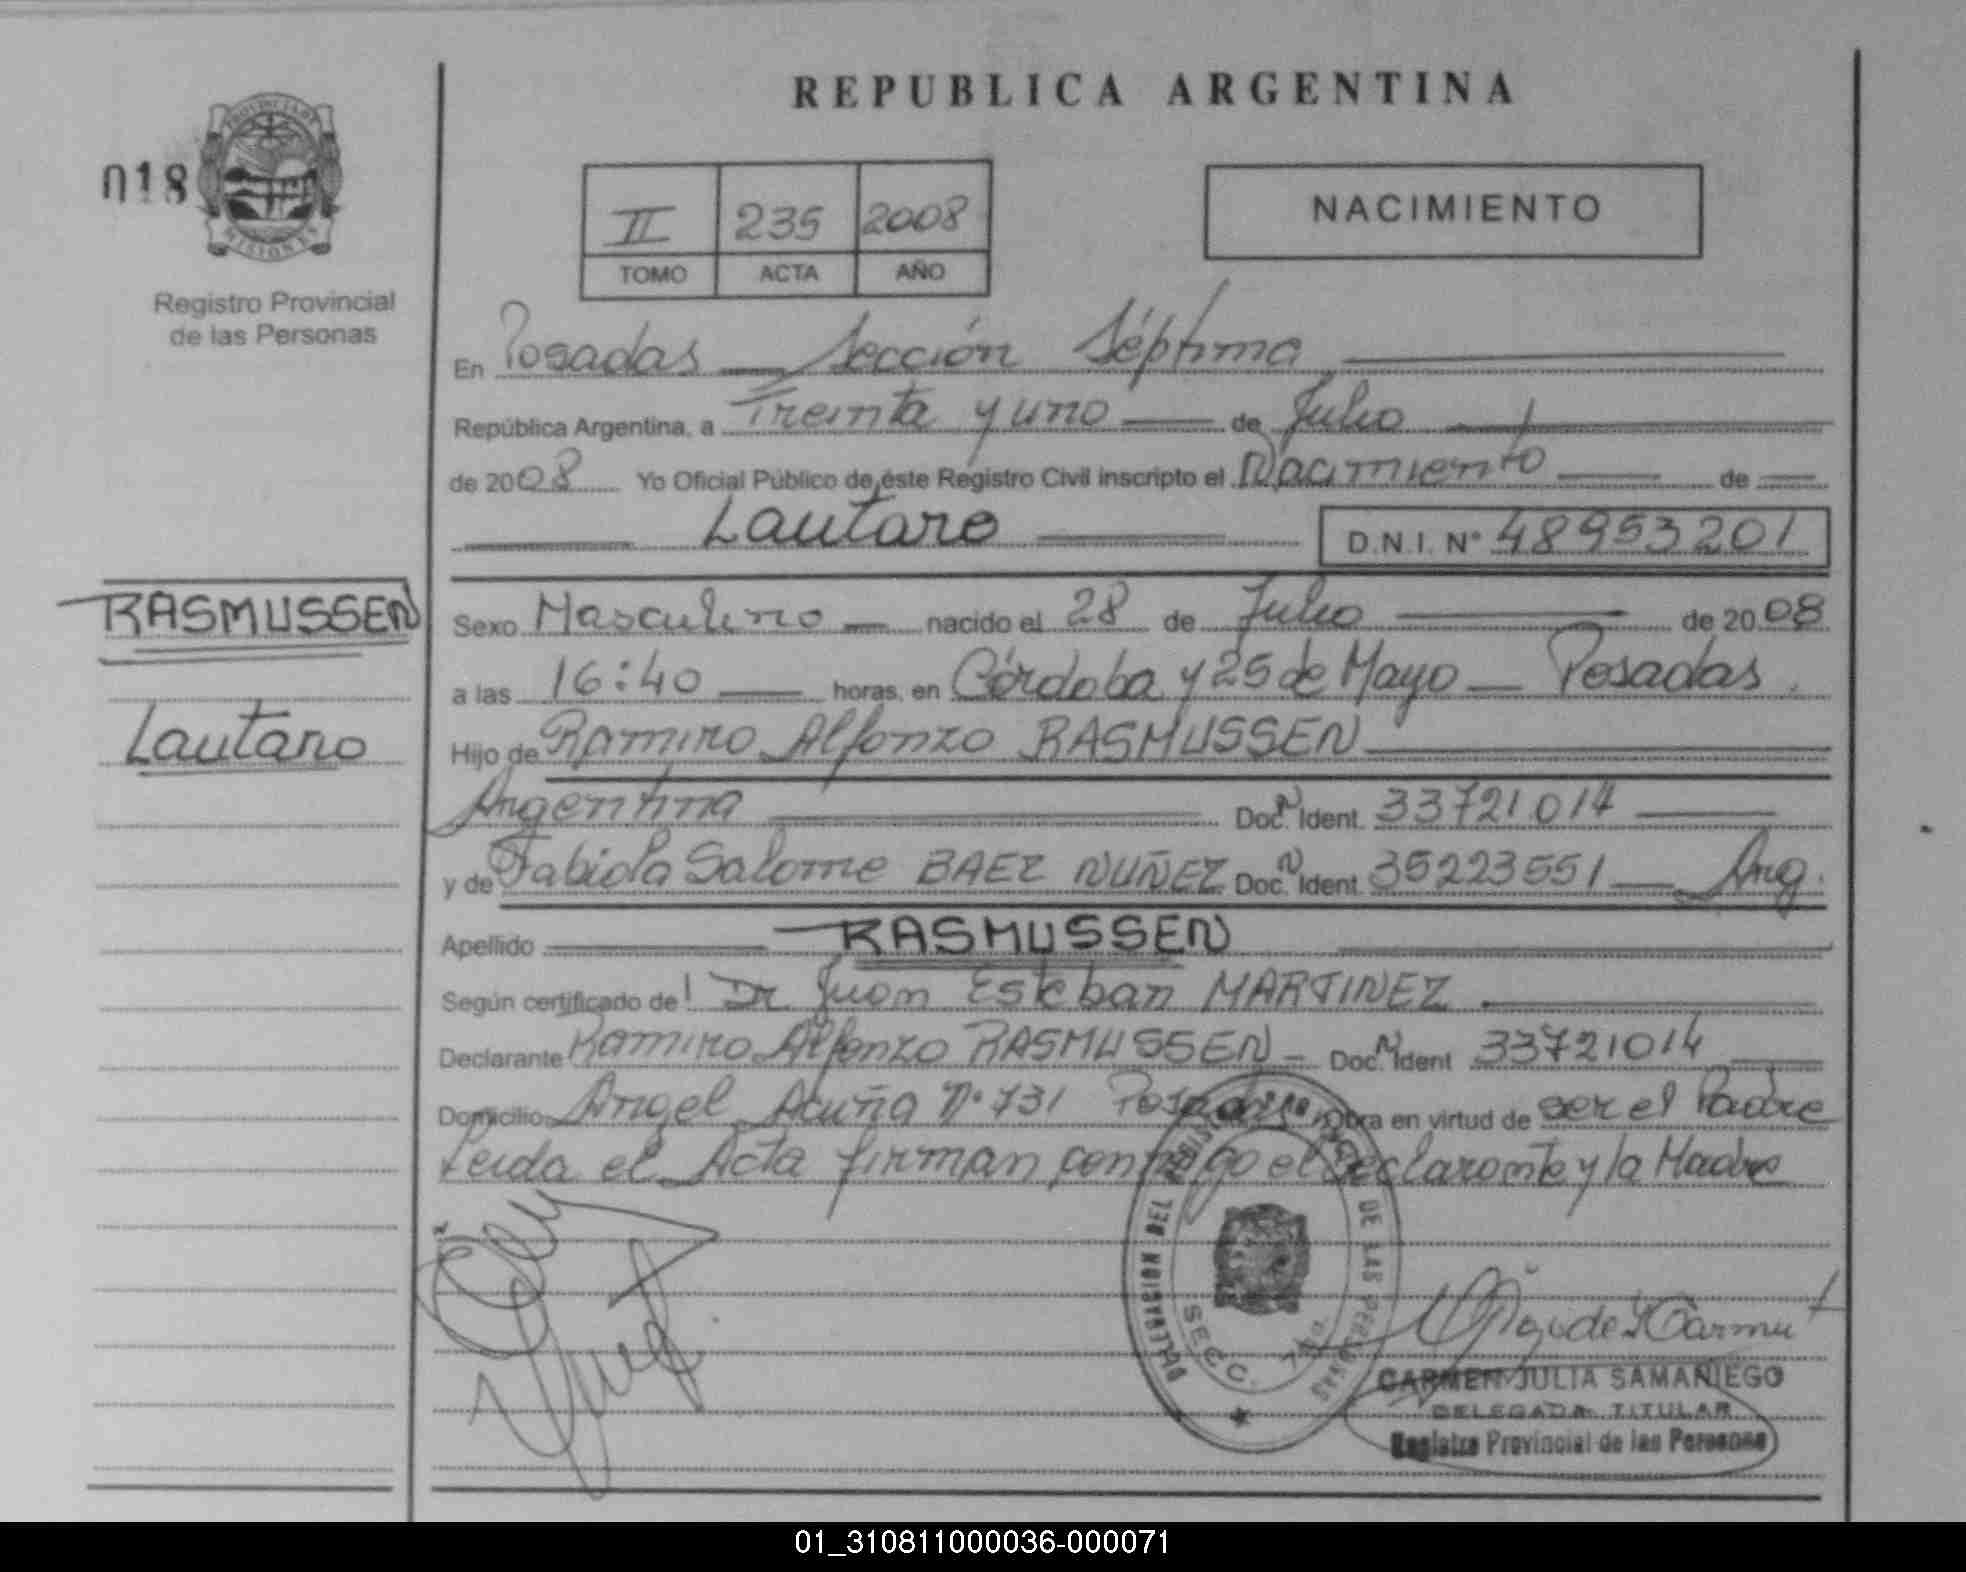 REPUBLICA ARGENTINA
018
PROVINCIA DE
MISIONES
Registro Provincial
de las Personas
II 235 2008
TOMO ACTA AÑO
NACIMIENTO
En Posadas — Sección Séptima
República Argentina, a Treinta y uno — de Julio
de 2008 Yo Oficial Público de éste Registro Civil inscripto el Nacimiento — de —
Lautaro
D.N.I. N° 48953201
RASMUSSEN
Lautaro
Sexo Masculino — nacido el 28 de Julio — de 2008
a las 16:40 — horas, en Córdoba y 25 de Mayo — Posadas.
Hijo de Ramiro Alfonzo RASMUSSEN
Argentina — Doc. N Ident. 33721014 —
y de Fabiola Salome BAEZ NUÑEZ Doc. N Ident. 35223551 — Arg.
Apellido — RASMUSSEN
Según certificado de Dr Juan Esteban MARTINEZ.
Declarante Ramiro Alfonzo RASMUSSEN — Doc. N Ident 33721014 —
Domicilio Angel Acuña N° 731 Posadas Obra en virtud de ser el Padre
Leida el Acta firman conmigo el declarante y la Madre
DELEGACION DEL DE LAS PERSONAS
SECC. 7ma.
CARMEN JULIA SAMANIEGO
DELEGADA TITULAR
Registro Provincial de las Personas
01_310811000036-000071